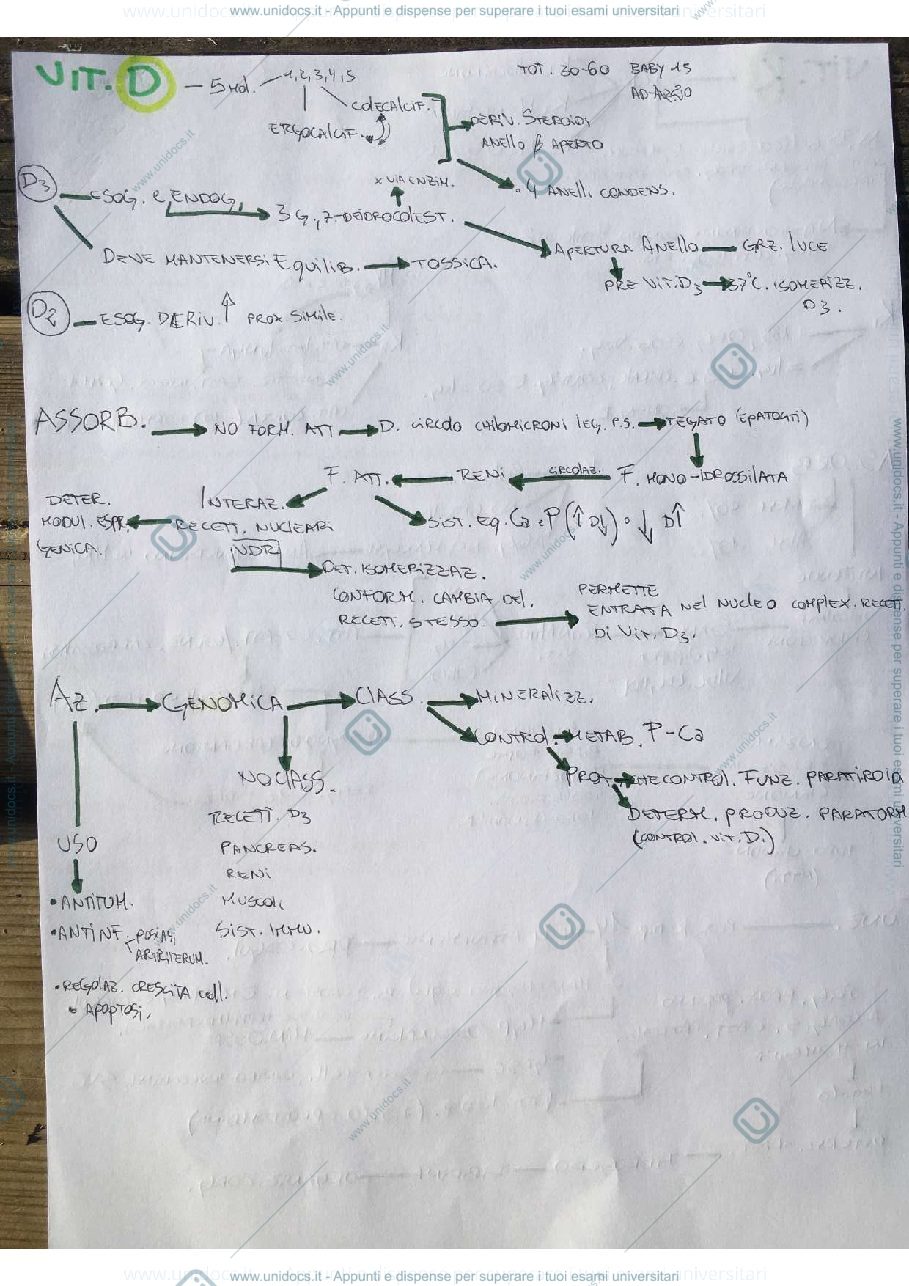 www.unidocs.it - Appunti e dispense per superare i tuoi esami universitari
VIT. D — 5 MOL. 1,2,3,4,5
TOT. 30-60 BABY 15
COLECALCIF.
ERGOCALCIF.
DERIV. STEROIDI
ANELLO β APERTO
4 ANELL. CONDENS.
x VIA ENZIM.
D3 — ESOG. e ENDOG. → 3 G, 7-DEIDROCOLEST.
APERTURA ANELLO — GRZ. LUCE
DEVE MANTENERSI EQUILIB. → TOSSICA.
PRE VIT. D3 → 37°C. ISOMERIZZ.
D3.
D2 — ESOG. DERIV. PROX SIMILE.
ASSORB. → NO FORM. ATT → D. CIRCOLO CHILOMICRONI LEG. P.S. → FEGATO (EPATOCITI)
F. ATT. ← RENI ← CIRCOLAZ. F. MONO-IDROSSILATA
DETER.
MODUL. ESPR.
GENICA.
INTERAZ.
RECETT. NUCLEARI
VDR
SIST. EQ. Ca e P (↑ D↓) ↓ D↑
DET. ISOMERIZZAZ.
CONFORM. CAMBIA DEL
RECETT. STESSO →
PERMETTE
ENTRATA NEL NUCLEO COMPLEX. RECETT.
DI VIT. D3.
AZ. → GENOMICA → CLASS. → MINERALIZZ.
CONTROL. → METAB. P-Ca
NO CLASS.
FUNZ. PARATIROID
DETERM. PRODUZ. PARATORM
(CONTROL. VIT. D.)
RECETT. D3
PANCREAS.
RENI
MUSCOLI
SIST. IMMU.
USO
• ANTITUM.
• ANTINF. PSORIAS,
• REGOLAZ. CRESCITA CELL.
• APOPTOSI,
www.unidocs.it - Appunti e dispense per superare i tuoi esami universitari